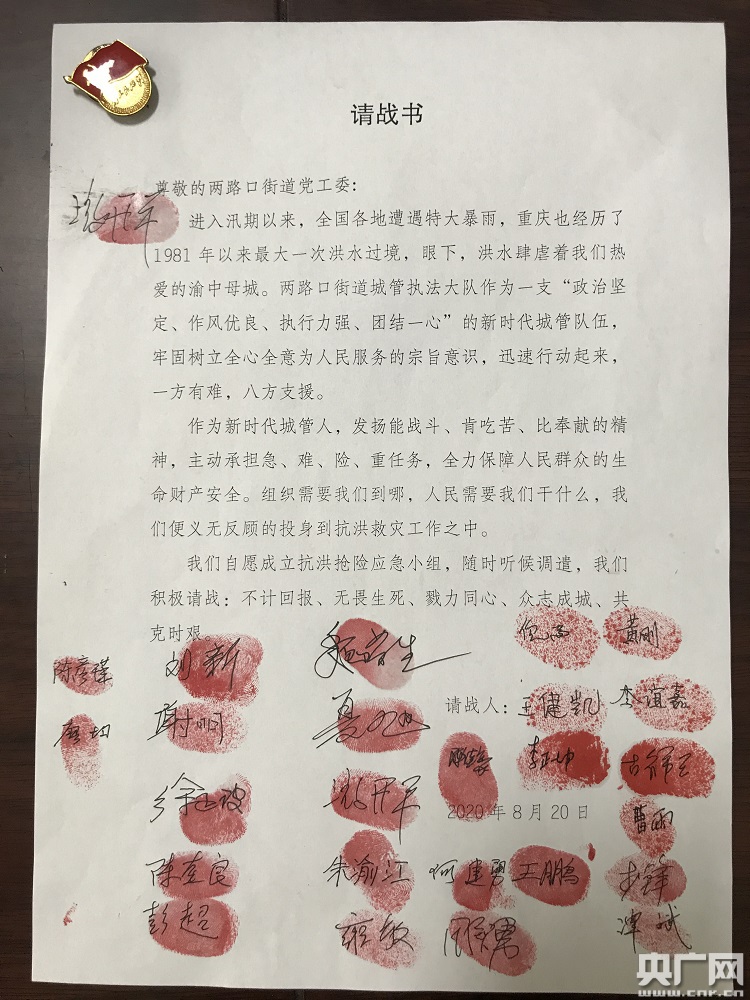 请战书
尊敬的两路口街道党工委：
进入汛期以来，全国各地遭遇特大暴雨，重庆也经历了
1981 年以来最大一次洪水过境，眼下，洪水肆虐着我们热
爱的渝中母城。两路口街道城管执法大队作为一支“政治坚
定、作风优良、执行力强、团结一心”的新时代城管队伍，
牢固树立全心全意为人民服务的宗旨意识，迅速行动起来，
一方有难，八方支援。
作为新时代城管人，发扬能战斗、肯吃苦、比奉献的精
神，主动承担急、难、险、重任务，全力保障人民群众的生
命财产安全。组织需要我们到哪，人民需要我们干什么，我
们便义无反顾的投身到抗洪救灾工作之中。
我们自愿成立抗洪抢险应急小组，随时听候调遣，我们
积极请战：不计回报、无畏生死、戮力同心、众志成城、共
克时艰
黄刚
陈彦瑾 刘新
请战人：王健凯 李谊嘉
谢明
2020 年 8 月 20 日
曹雨
陈克良 朱渝江 何建勇 王鹏
彭超 谭斌
央广网
www.cnr.cn